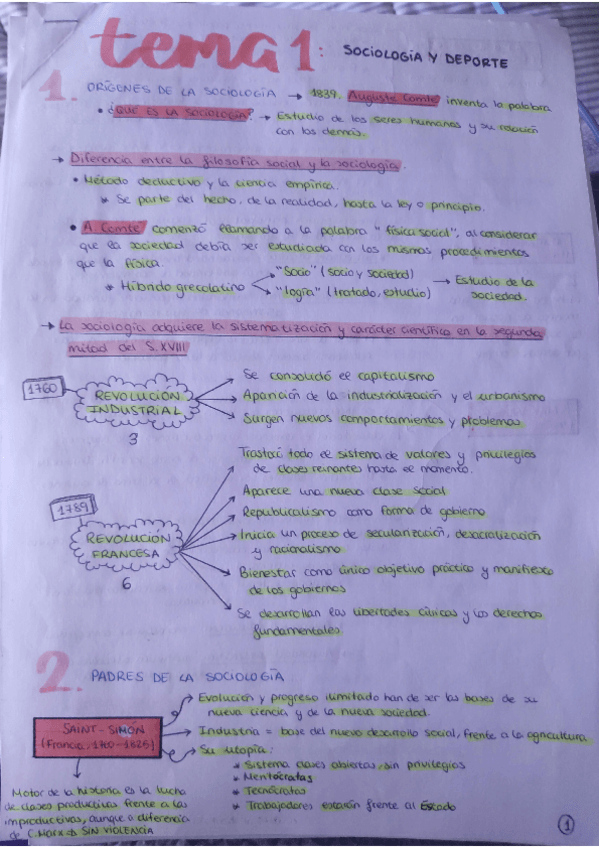 tema 1: SOCIOLOGÍA Y DEPORTE
1. ORÍGENES DE LA SOCIOLOGÍA → 1839. Auguste Comte inventa la palabra
• ¿QUÉ ES LA SOCIOLOGÍA? → Estudio de los seres humanos y su relación
con los demás.
→ Diferencia entre la filosofía social y la sociología.
• Método deductivo y la ciencia empírica.
* Se parte del hecho, de la realidad, hasta la ley o principio.
• A. Comte comenzó llamando a la palabra "física social", al considerar
que la sociedad debía ser estudiada con los mismos procedimientos
que la física.
* Híbrido grecolatino
"Socio" (socio y sociedad)
"logía" (tratado, estudio)
→ Estudio de la
sociedad.
→ La sociología adquiere la sistematización y carácter científico en la segunda
mitad del S.XVIII
1760
REVOLUCIÓN
INDUSTRIAL
3
Se consolidó el capitalismo
Aparición de la industrialización y el urbanismo
Surgen nuevos comportamientos y problemas
1789
REVOLUCIÓN
FRANCESA
6
Trastocó todo el sistema de valores y privilegios
de clases reinantes hasta el momento.
Aparece una nueva clase social
Republicalismo como forma de gobierno
Inicia un proceso de secularización, desacralización
y racionalismo
Bienestar como único objetivo práctico y manifiesto
de los gobiernos
Se desarrollan las libertades cívicas y los derechos
fundamentales.
2. PADRES DE LA SOCIOLOGÍA
SAINT-SIMÓN
(Francia, 1760-1825)
Evolución y progreso ilimitado han de ser las bases de su
nueva ciencia y de la nueva sociedad.
Industria = base del nuevo desarrollo social, frente a la agricultura.
Su utopía:
* Sistema clases abiertas, sin privilegios
* Meritócratas
* Tecnócratas
* Trabajadores estarán frente al Estado
Motor de la historia es la lucha
de clases productivas frente a las
improductivas, aunque a diferencia
de C.Marx → SIN VIOLENCIA
1